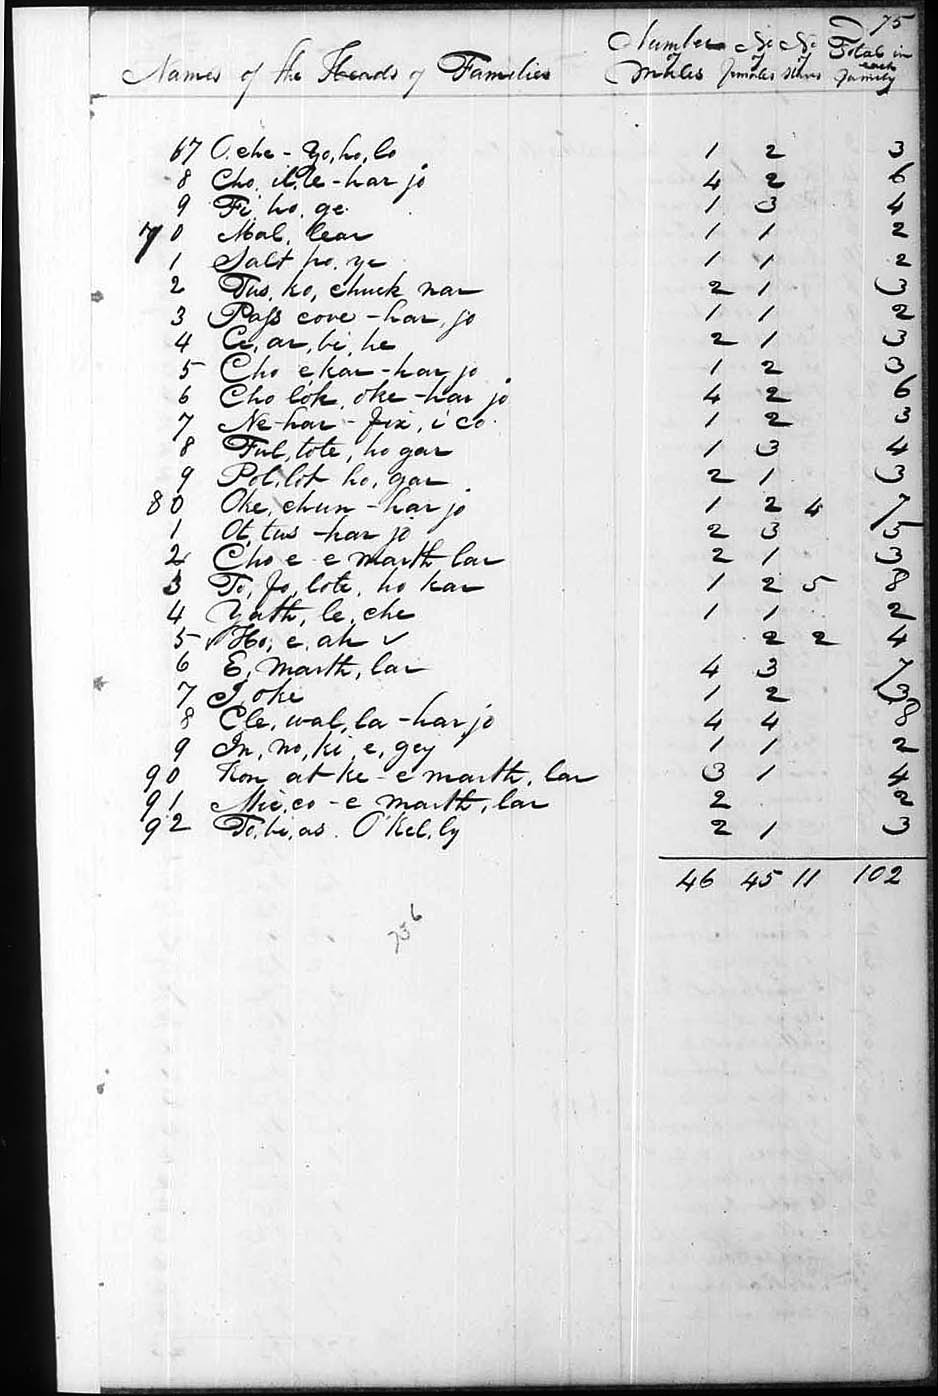 75
Names of the Heads of Families Number of Males No of females No of slaves Total in each family
67 O.che - Yo,ho,lo 1 2 3
8 Cho. il,le - har jo 4 2 6
9 Fi, ho. ge. 1 3 4
70 Mal, lear 1 1 2
1 Salt po. ye 1 1 2
2 Tus, ko, chuck nar 2 1 3
3 Pass cove - har, jo 1 1 2
4 Ce, ar, bi, he 2 1 3
5 Cho e kar - har jo 1 2 3
6 Cho lok, oke - har jo 4 2 6
7 Ne har - fix, i co. 1 2 3
8 Ful, tote, ho gar 1 3 4
9 Pol, lot ho, gar 2 1 3
80 Oke, chun - har jo 1 2 4 7
1 Ot, tus - har jo 2 3 5
2 Cho e - e marth, lar 2 1 3
3 To, fo, lote, ho kar 1 2 5 8
4 Yath, le, che 1 1 2
5 Ho, e, ah ✓ 2 2 4
6 E, marth, lar 4 3 7
7 J, oke 1 2 3
8 Cle, wal, la - har jo 4 4 8
9 In, no, ki, e, gey 1 1 2
90 Kon at ke - e marth, lar 3 1 4
91 Mic, co - e marth, lar 2 2
92 To, bi, as. O'Kel, ly 2 1 3
46 45 11 102
756